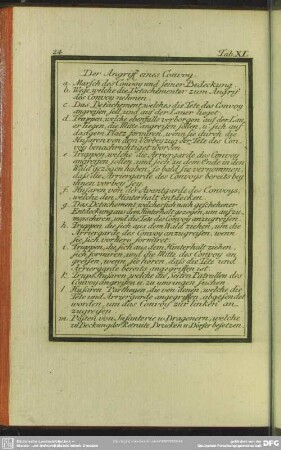 24
Tab. XI.
Der Angriff eines Convoy.
a. Marsch des Convoy und seiner Bedeckung
b. Wege, welche die Detachementer zum Angriff
des Convoy nehmen.
c. Das Detachement, welches die Tete des Convoy
angreifen soll, und auf der Lauer lieget.
d. Truppen, welche ebenfalls verborgen auf der Lau-
er liegen, die Mitte angreifen sollen, u. sich auf
dasigem Platz formiren, wenn sie durch die
Husaren von dem Vorbeyzug der Tete des Con-
voy benachrichtiget worden.
e. Truppen, welche die Arriergarde des Convoy
angreifen sollen, und sich zu dem Ende in den
Wald gezogen haben, so bald sie vernommen,
daß die Arriergarde des Convoy bereits bey
ihnen vorbey sey.
f. Husaren von der Avantgarde des Convoys,
welche den Hinterhalt entdecken.
g. Das Detachement, welches sich nach geschehener
Entdeckung aus dem Hinterhalt gezogen, um auf zu
marschiren, und die Tete des Convoy anzugreifen.
h. Truppen, die sich aus dem Wald ziehen, um die
Arriergarde des Convoy anzugreifen, wenn
sie sich vorhero formiret.
i. Truppen, die sich aus dem Hinterhalt ziehen,
sich formiren, und die Mitte des Convoy an
greifen, wenn sie hören, daß die Tete und
Arriergarde bereits angegriffen ist.
k. Trups Husaren, welche die Seiten Patrullen des
Convoy angreifen u. zu umringen suchen
l. Husaren Partheyen, die von denen, welche die
Tete und Arriergarde angegriffen, abgesendet
worden, um das Convoy zur linken an
zugreifen
m. Posten von Infanterie u. Dragonern, welche
zu Deckung der Retraite, Brucken u. Dörfer besetzen.